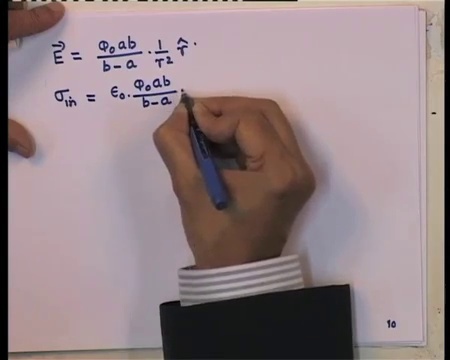 E⃗ = φ₀ab/(b-a) · 1/r² r̂ .
σin = ε₀ . φ₀ab/(b-a) .
10